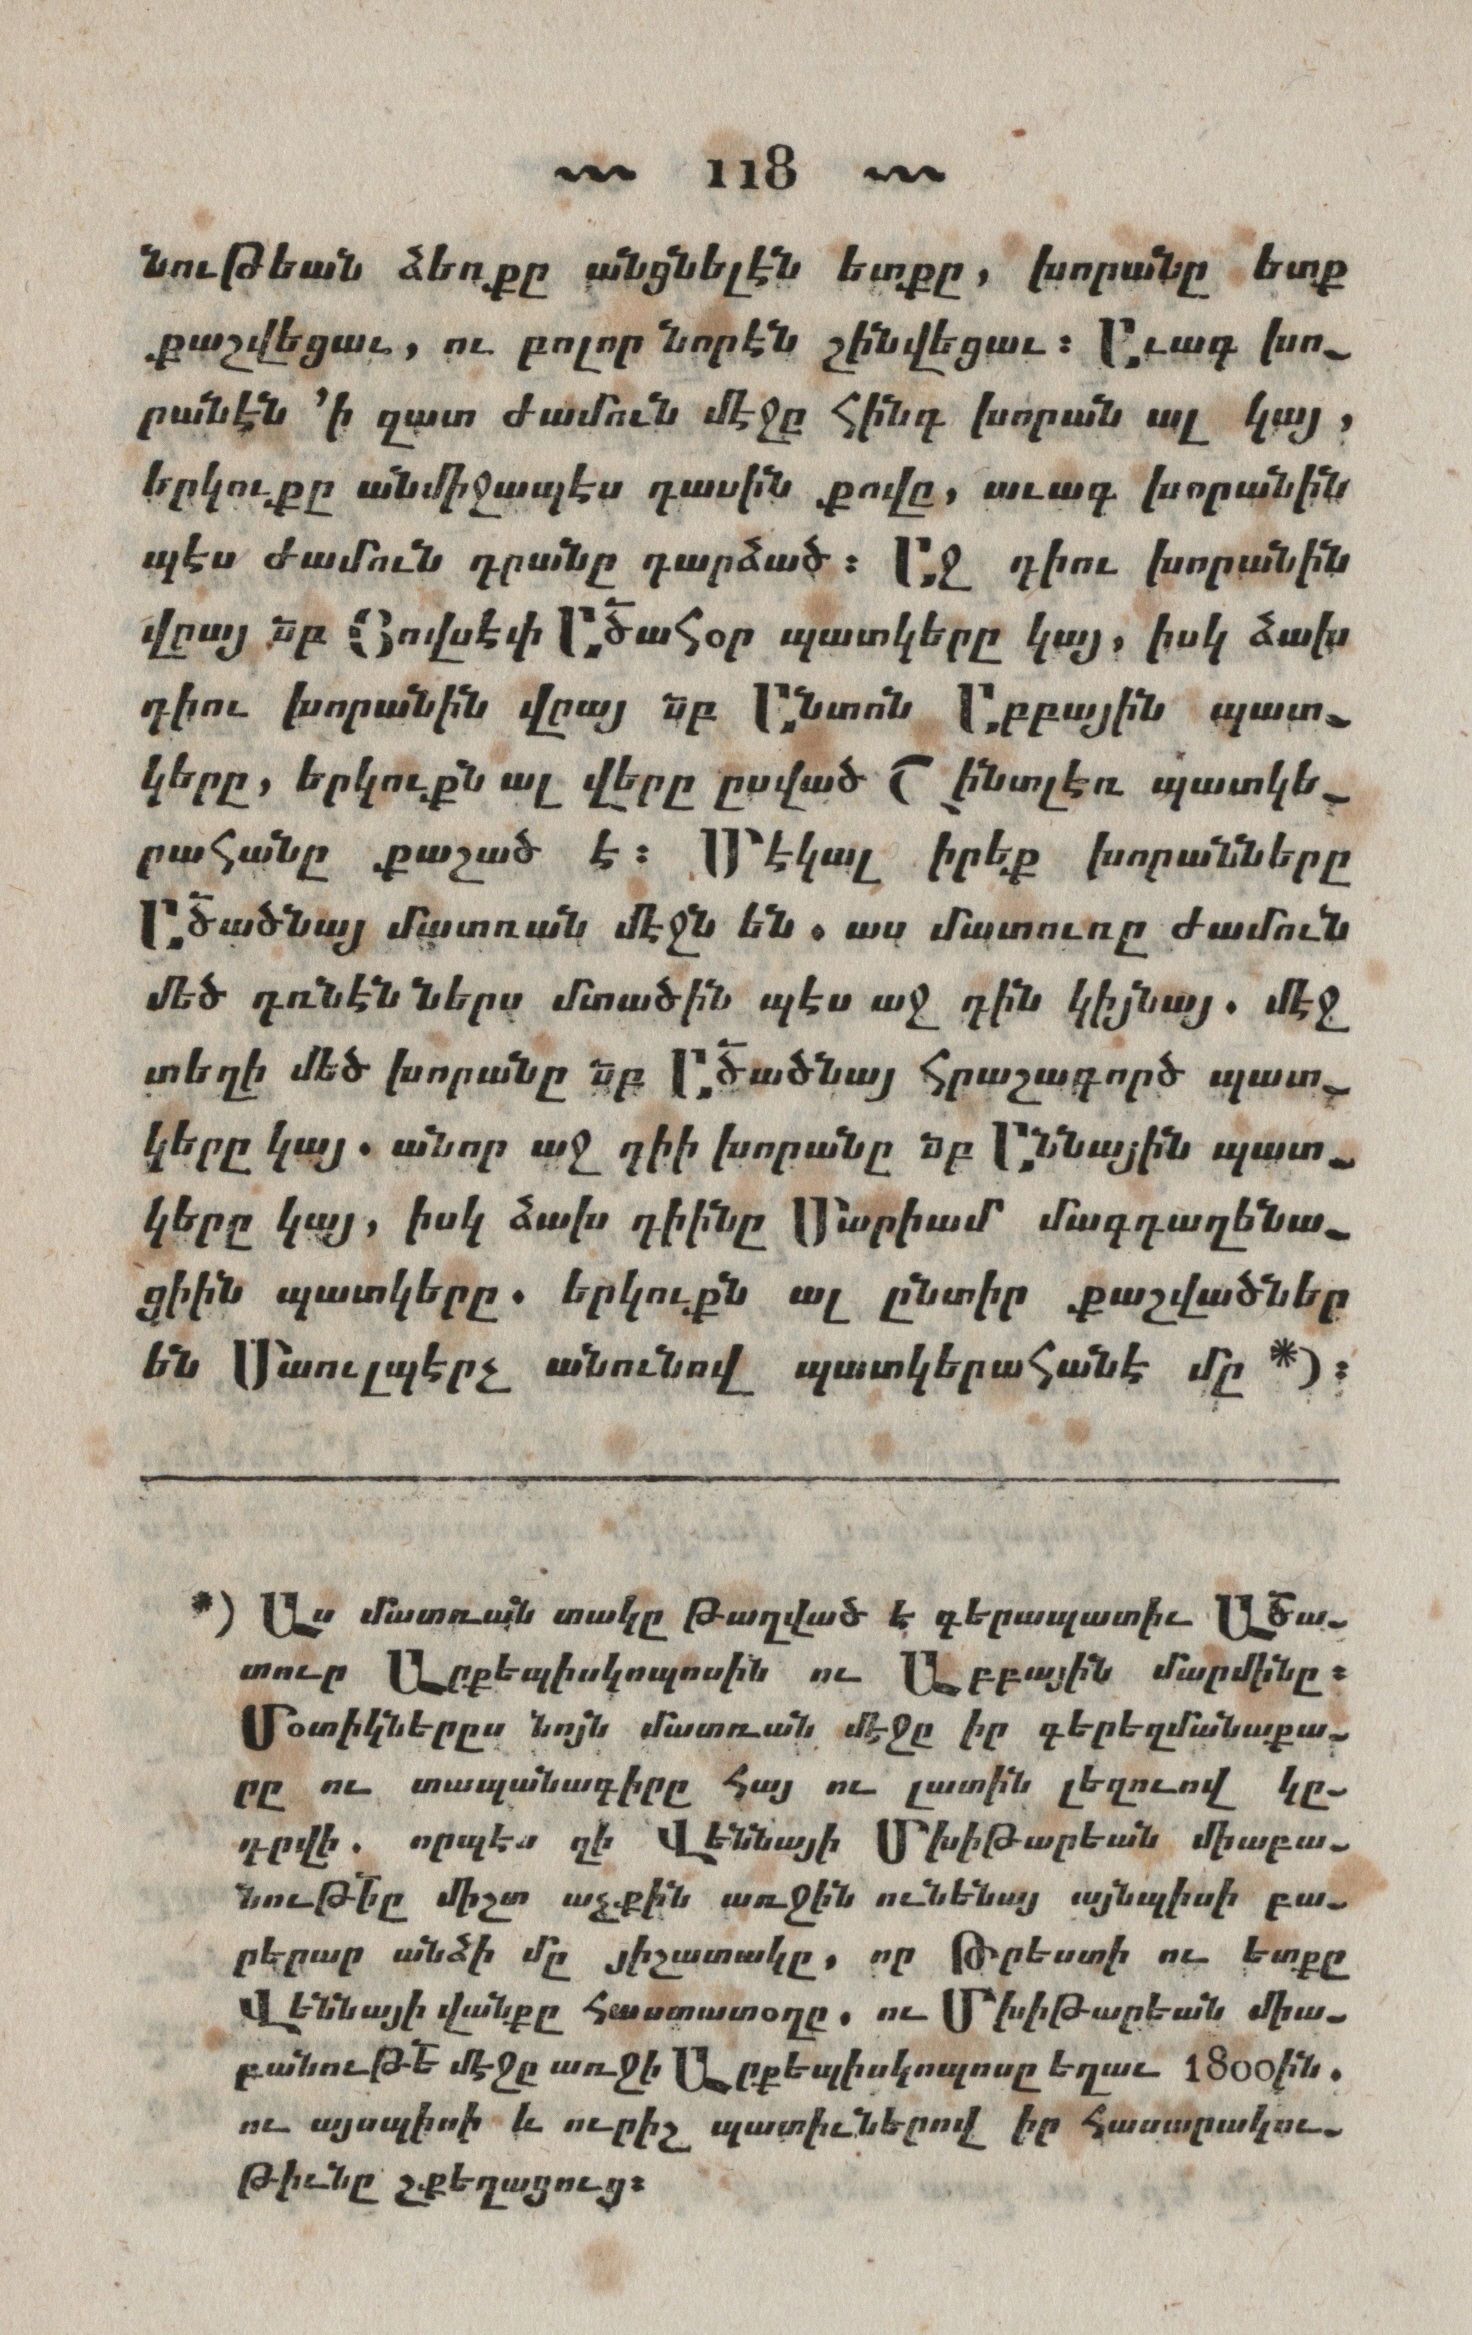 118
նութեան ձեռքը անցնելէն ետքը, խորանը ետք
քաշվեցաւ, ու բոլոր նորէն շինվեցաւ։ Աւագ խո-
րանէն ՚ի զատ ժամուն մէջը հինգ խորան ալ կայ,
երկուքը անմիջապէս դասին քովը, աւագ խորանին
պէս ժամուն դրանը դարձած։ Աջ դիու խորանին
վրայ սբ Յովսէփ Ածահօր պատկերը կայ, իսկ ձախ
դիու խորանին վրայ սբ Անտոն Աբբային պատ-
կերը, երկուքն ալ վերը ըսված Շինտլէռ պատկե-
րահանը քաշած է։ Մէկալ իրեք խորանները
Ածածնայ մատռան մէջն են. աս մատուռը ժամուն
մեծ դռնէն ներս մտածին պէս աջ դին կիյնայ. մէջ
տեղի մեծ խորանը սբ Ածածնայ հրաշագործ պատ-
կերը կայ. անոր աջ դիի խորանը սբ Աննային պատ-
կերը կայ, իսկ ձախ դիինը Մարիամ մագդաղենա-
ցիին պատկերը. երկուքն ալ ընտիր քաշվածներ
են Մաուլպէրչ անունով պատկերահանէ մը *)։
*) Աս մատռան տակը թաղված է գերապատիւ Ածա-
տուր Արքեպիսկոպոսին ու Աբբային մարմինը։
Մօտիկներըս նոյն մատռան մէջը իր գերեզմանաքա-
րը ու տապանագիրը հայ ու լատին լեզուով կը-
դրվի. որպէս զի Վեննայի Մխիթարեան միաբա-
նութիը միշտ աչքին առջին ունենայ այնպիսի բա-
րերար անձի մը յիշատակը, որ Թրեստի ու ետքը
Վեննայի վանքը հաստատօղը. ու Մխիթարեան միա-
բանութե մէջը առջի Արքեպիսկոպոսը եղաւ 1800ին.
ու այսպիսի և ուրիշ պատիւներով իր հասարակու-
թիւնը չքեղացուց։